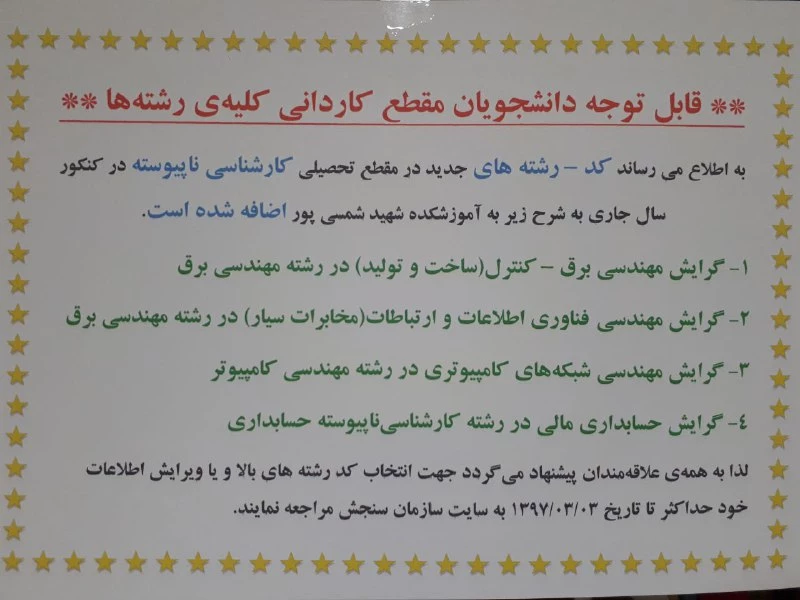 ** قابل توجه دانشجویان مقطع کاردانی کلیه‌ی رشته‌ها **
به اطلاع می رساند کد – رشته های جدید در مقطع تحصیلی کارشناسی ناپیوسته در کنکور
سال جاری به شرح زیر به آموزشکده شهید شمسی پور اضافه شده است.
۱- گرایش مهندسی برق – کنترل(ساخت و تولید) در رشته مهندسی برق
۲- گرایش مهندسی فناوری اطلاعات و ارتباطات(مخابرات سیار) در رشته مهندسی برق
۳- گرایش مهندسی شبکه‌های کامپیوتری در رشته مهندسی کامپیوتر
٤- گرایش حسابداری مالی در رشته کارشناسی‌ناپیوسته حسابداری
لذا به همه‌ی علاقه‌مندان پیشنهاد می‌گردد جهت انتخاب کد رشته های بالا و یا ویرایش اطلاعات
خود حداکثر تا تاریخ ۱۳۹۷/۰۳/۰۳ به سایت سازمان سنجش مراجعه نمایند.